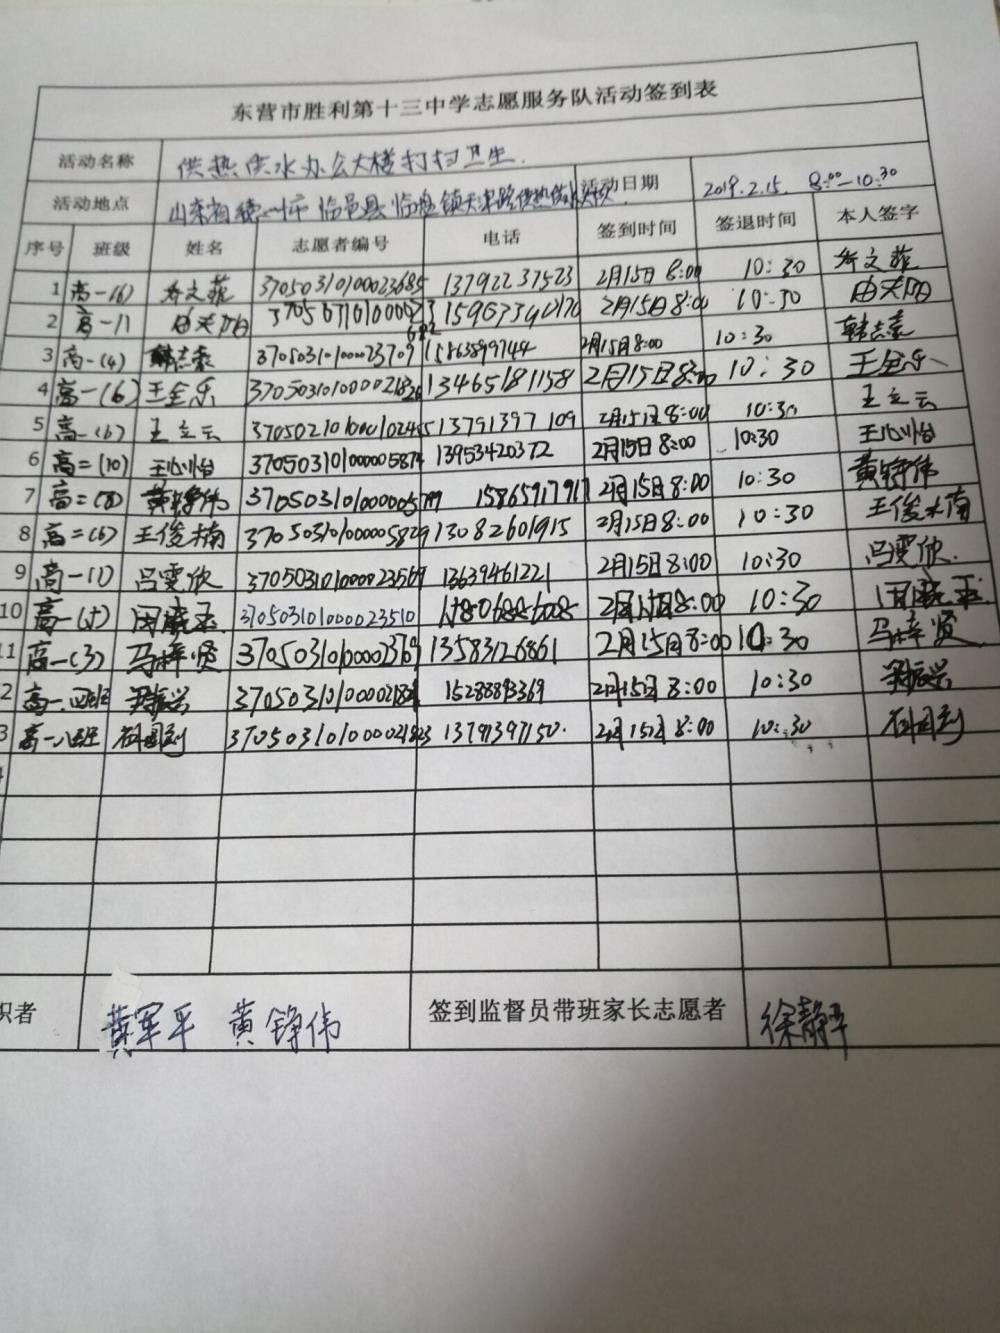 东营市胜利第十三中学志愿服务队活动签到表
活动名称 供热供水办公大楼打扫卫生.
活动地点 山东省德州市临邑县临盘镇天津路供热供水大队. 活动日期 2019.2.15. 8:00-10:30
序号 班级 姓名 志愿者编号 电话 签到时间 签退时间 本人签字
1 高一(6) 乔文菲 370503101000023685 13792237523 2月15日 8:00 10:30 乔文菲
2 高一 2月15日8:00 10:30
3 高一(4) 韩志豪 370503101000023709 15863899744 2月15日8:00 10:30 韩志豪
4 高一(6) 王全乐 13465181158 2月15日8:00 10:30 王全乐
5 高一(6) 王立云 13791397109 2月15日8:00 10:30 王立云
6 高二(10) 王心怡 370503101000005874 13953420372 2月15日8:00 10:30 王心怡
7 高二(8) 黄铮伟 15865917917 2月15日8:00 10:30 黄铮伟
8 高二(6) 王俊楠 370503101000005829 13082601915 2月15日8:00 10:30 王俊楠
9 高一(1) 吕雯欣 370503101000023569 13639461221 2月15日8:00 10:30 吕雯欣.
10 高一 370503101000023510 2月15日8:00 10:30
11 高一(3) 马梓贤 13583126861 2月15日8:00 10:30 马梓贤
2 高一.四班 尹振兴 15288893369 2月15日 8:00 10:30 尹振兴
3 高一八班 370503101000021823 13791397150. 2月15日 8:00 10:30
织者 黄军平 黄铮伟 签到监督员带班家长志愿者 徐静平